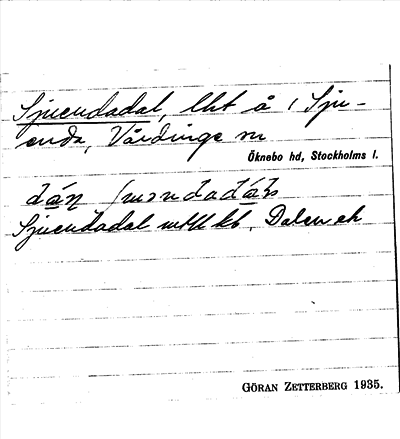 Sjuendadal, lht å 1 Sju-
enda, Vårdinge sn
Öknebo hd, Stockholms l.
dáṇ
Sjuendadal Dalen ek
GÖRAN ZETTERBERG 1935.